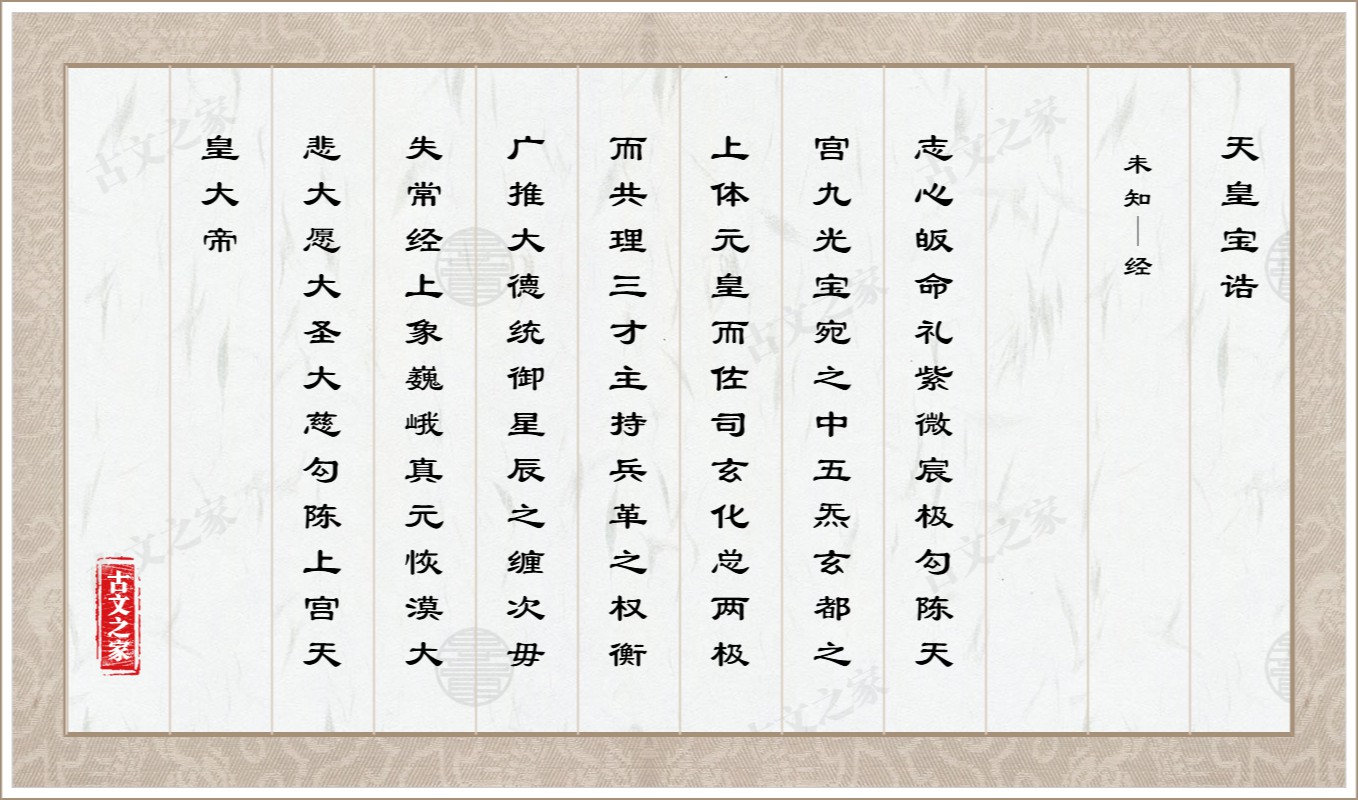 天皇宝诰
未知—经
志心皈命礼紫微宸极勾陈天
宫九光宝宛之中五炁玄都之
上体元皇而佐司玄化总两极
而共理三才主持兵革之权衡
广推大德统御星辰之缠次毋
失常经上象巍峨真元恢漠大
悲大愿大圣大慈勾陈上宫天
皇大帝
古文之家
古文之家
古文之家
古文之家
古文之家
古文之家
古文之家